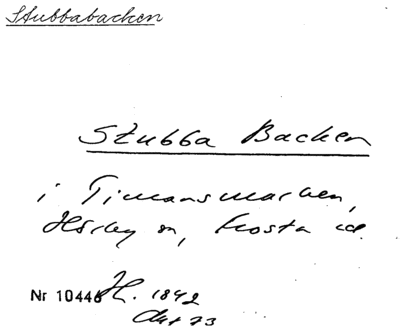 Stubbabacken
Stubba Backen
i Timansmarken,
Hörby sn, Frosta hd.
Nr 10446 H. 1842
Akt 73